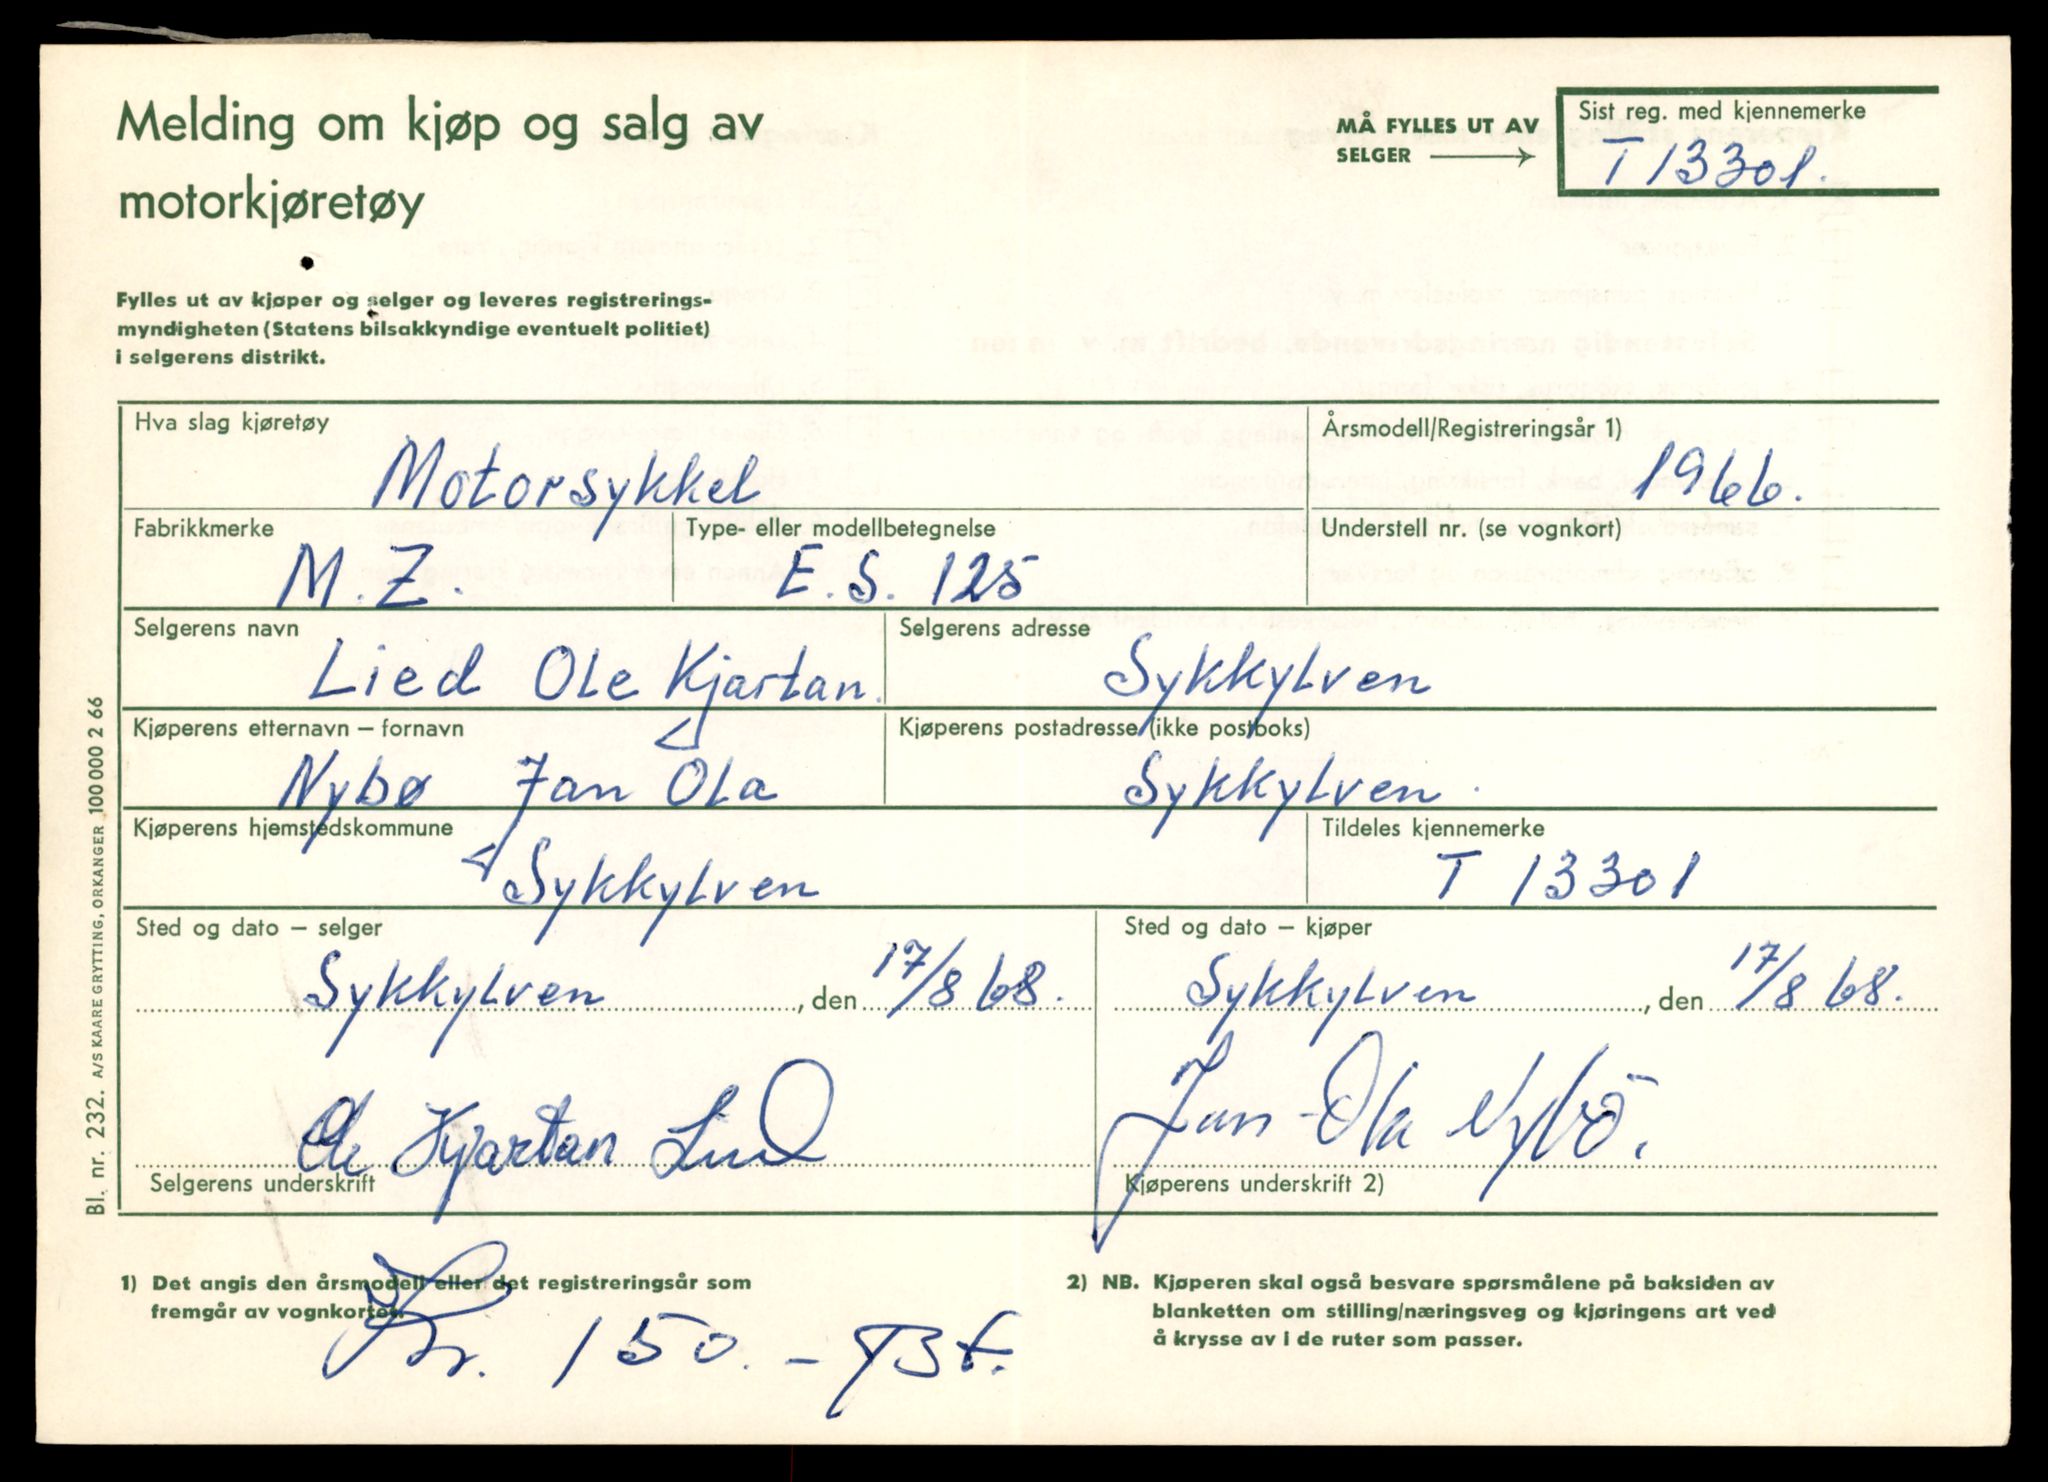 Melding om kjøp og salg av
motorkjøretøy
MÅ FYLLES UT AV
SELGER
Sist reg. med kjennemerke
T 13301.
Fylles ut av kjøper og selger og leveres registrerings-
myndigheten (Statens bilsakkyndige eventuelt politiet)
i selgerens distrikt.
Hva slag kjøretøy
Motorsykkel
Årsmodell/Registreringsår 1)
1966.
Fabrikkmerke
M.Z.
Type- eller modellbetegnelse
E.S. 125
Understell nr. (se vognkort)
Selgerens navn
Lied Ole Kjartan.
Selgerens adresse
Sykkylven
Kjøperens etternavn – fornavn
Nybø Jan Ola
Kjøperens postadresse (ikke postboks)
Sykkylven.
Kjøperens hjemstedskommune
Sykkylven
Tildeles kjennemerke
T 13301
Sted og dato – selger
Sykkylven, den 17/8 68.
Sted og dato – kjøper
Sykkylven, den 17/8 68.
Ole Kjartan Lied
Selgerens underskrift
Jan-Ola Nybö.
Kjøperens underskrift 2)
1) Det angis den årsmodell eller det registreringsår som
fremgår av vognkortet.
2) NB. Kjøperen skal også besvare spørsmålene på baksiden av
blanketten om stilling/næringsveg og kjøringens art ved
å krysse av i de ruter som passer.
Kr. 150.-
Bl. nr. 232. A/S KAARE GRYTTING, ORKANGER 100 000 2 66